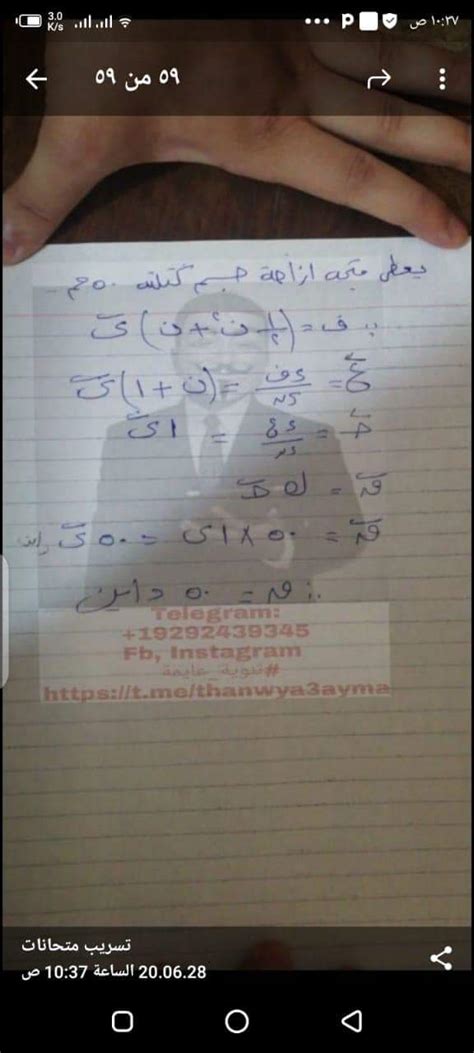 3.0 K/s
١٠:٣٧ ص
٥٩ من ٥٩
يعطى متجه ازاحة جسم كتلته ٥٠ جم
بـ ف = (١/٢ ن٢ + ن) ى
ع = دف/دن = (ن + ١) ى
جـ = دع/دن = ١ ى
ق = ك جـ
ق = ٥٠ × ١ ى = ٥٠ ى
∴ ق = ٥٠ داين
Telegram:
+19292439345
Fb, Instagram
#ثانوية_عايمة
https://t.me/thanwya3ayma
تسريب متحانات
20.06.28 الساعة 10:37 ص